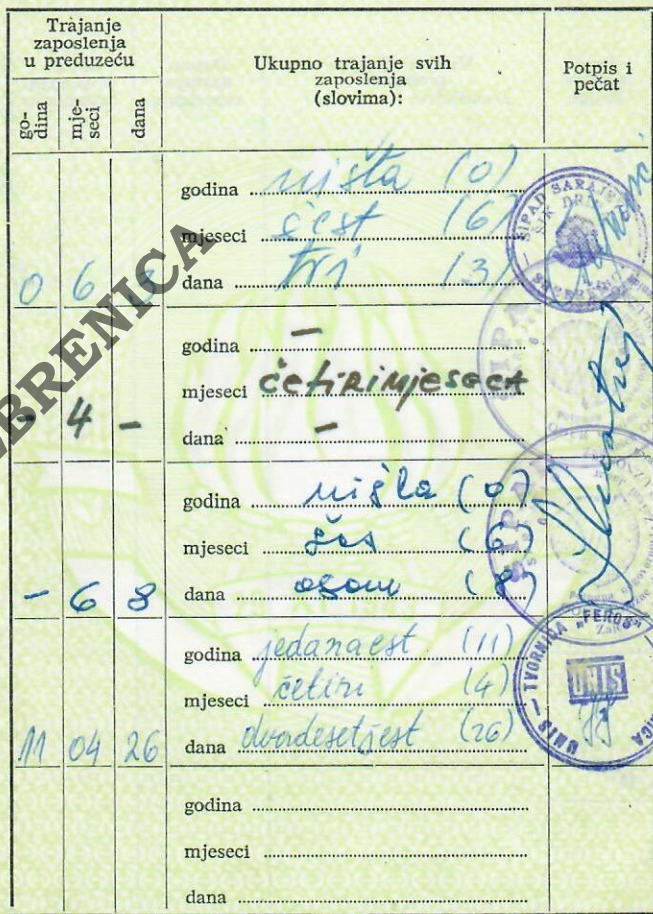 Trajanje zaposlenja u preduzeću
Ukupno trajanje svih zaposlenja (slovima):
Potpis i pečat
go-dina
mje-seci
dana
godina ništa (0)
mjeseci šest (6)
0 6 3 dana tri (3)
ŠIPAD SARAJEVO
godina –
mjeseci četiri mjeseca
- 4 - dana –
BRENICA
godina ništa (0)
mjeseci šes (6)
- 6 8 dana osam (8)
ŠIPAD
godina jedanaest (11)
mjeseci četiri (4)
11 04 26 dana dvadesetšest (26)
UNIS – TVORNICA „FEROS"
UNIS
godina
mjeseci
dana